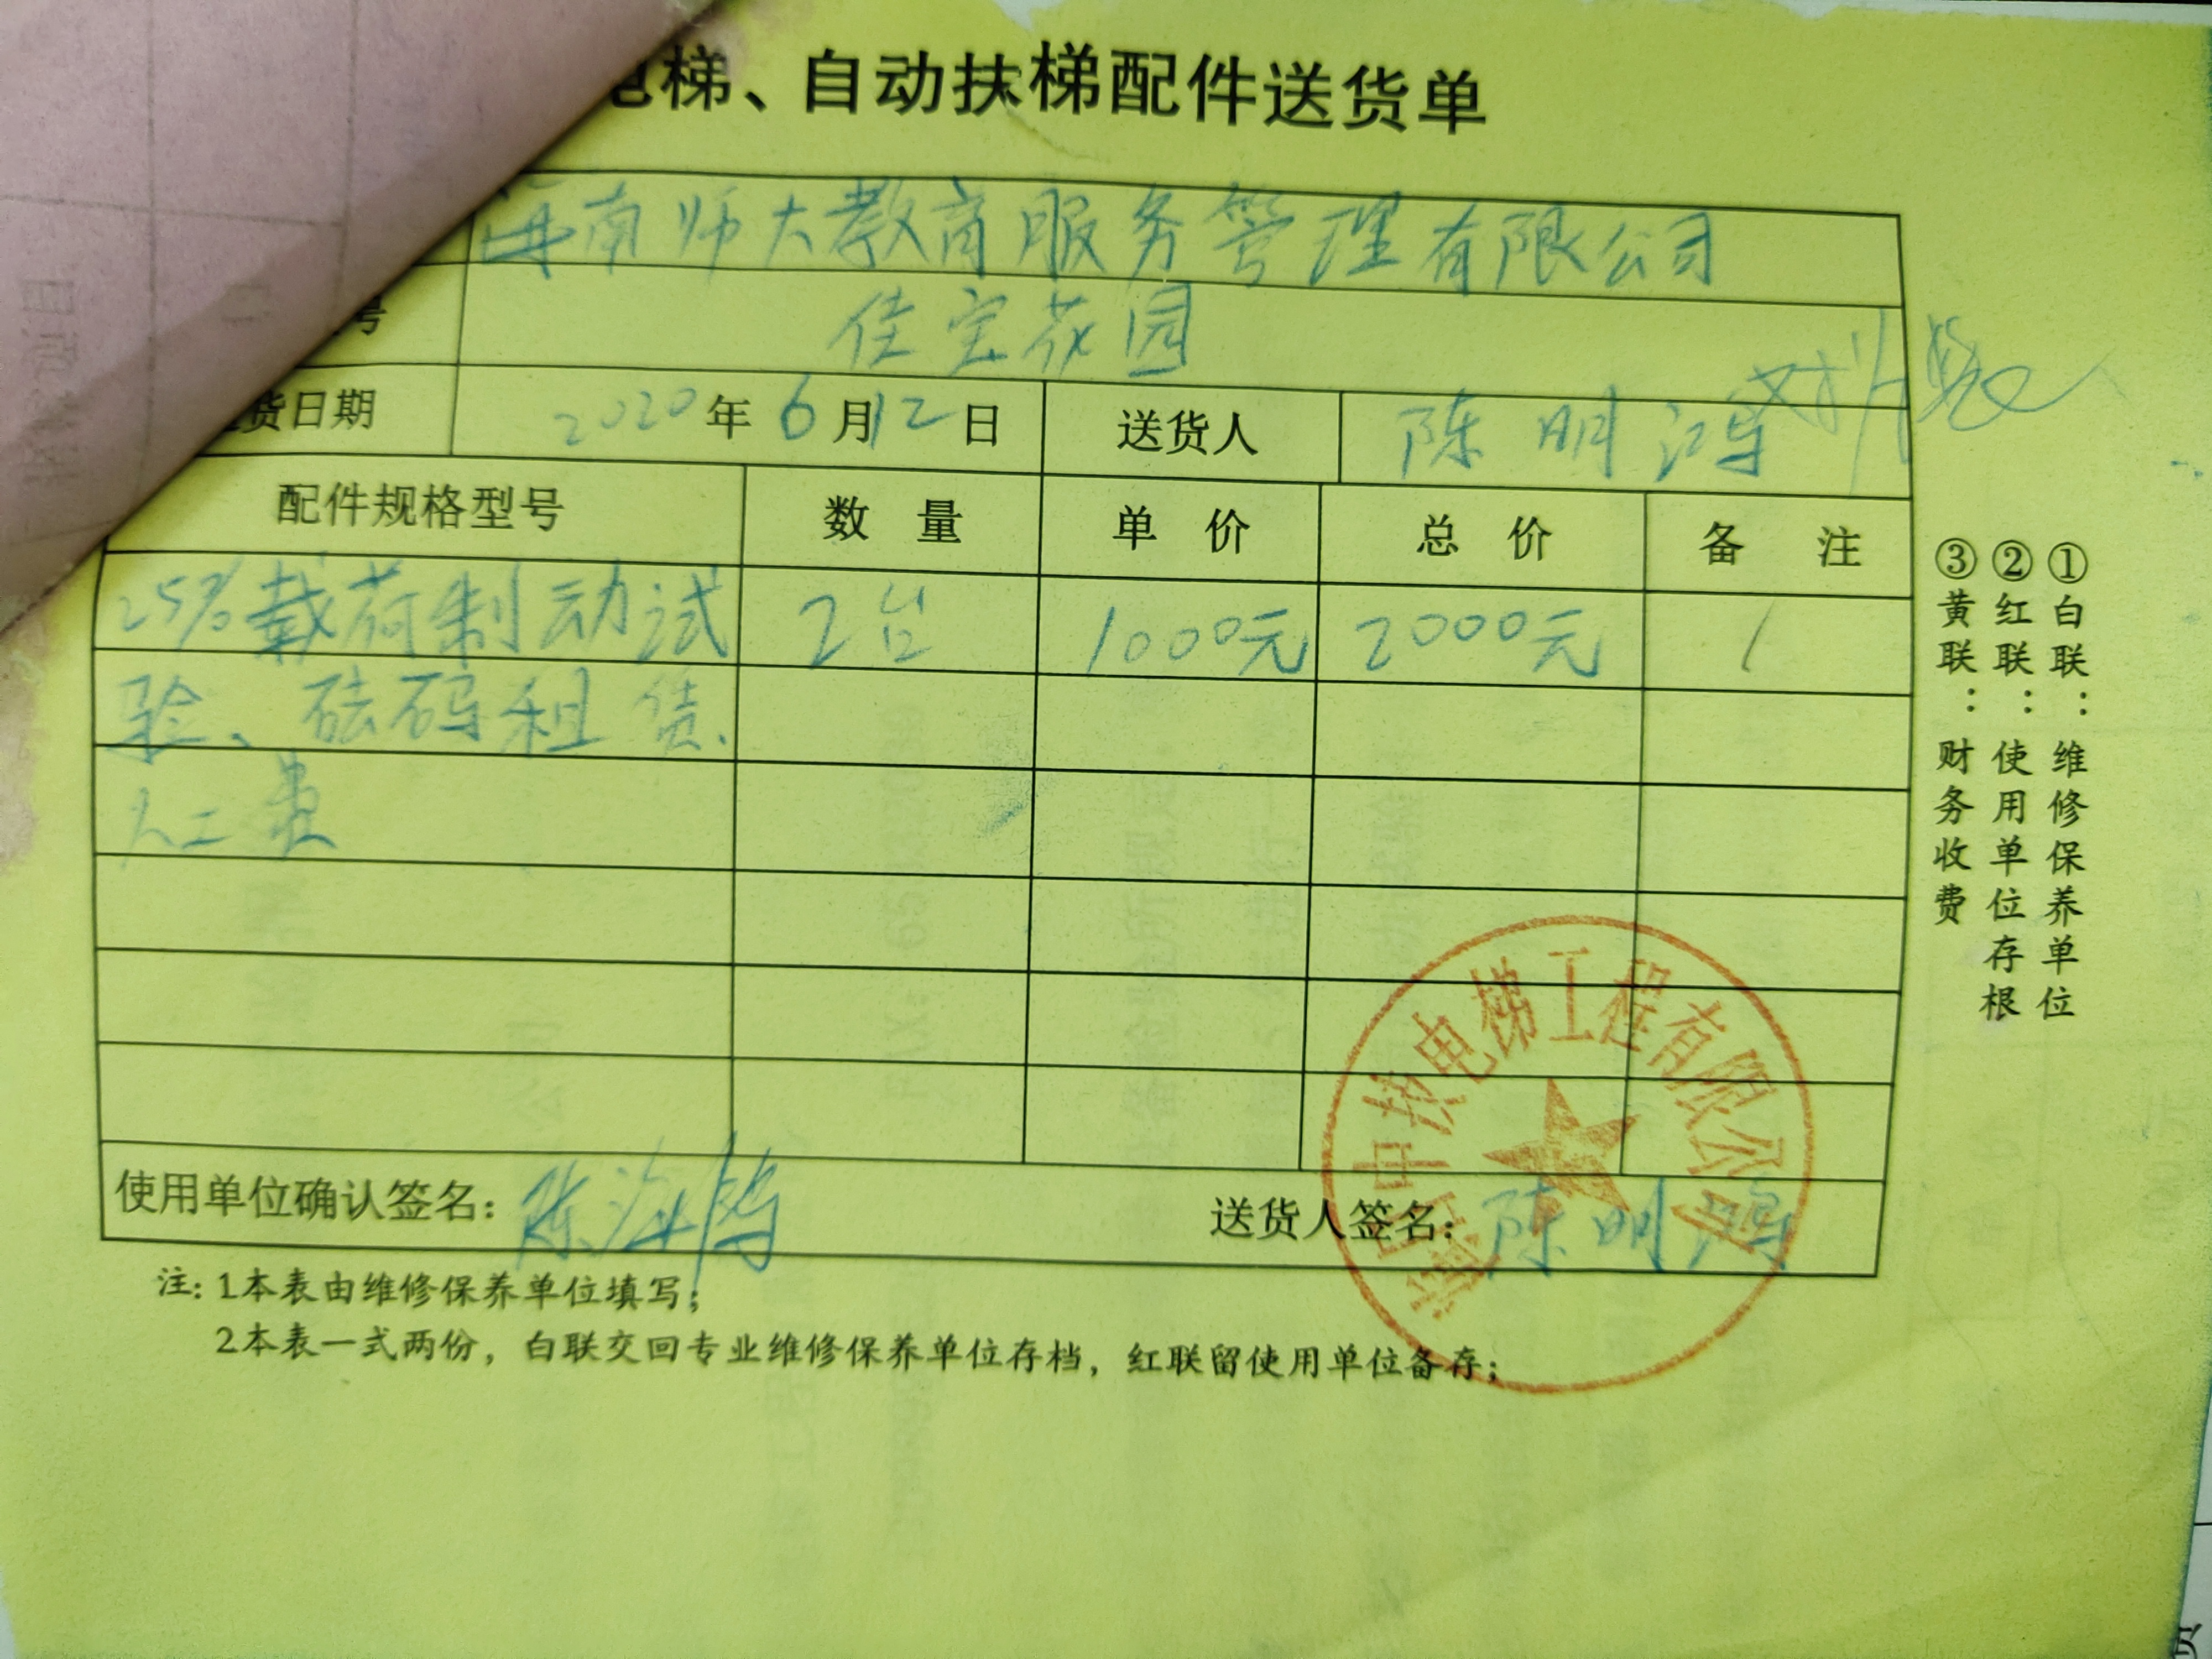 电梯、自动扶梯配件送货单
海南师大教育服务管理有限公司
号 佳宝花园
货日期 2020年6月12日 送货人 陈明鸿
配件规格型号 数量 单价 总价 备注
25%载荷制动试 2台 1000元 2000元 /
验、砝码租赁、
人工费
使用单位确认签名： 送货人签名：陈明鸿
注：1本表由维修保养单位填写；
2本表一式两份，白联交回专业维修保养单位存档，红联留使用单位备存；
①白联：维修保养单位
②红联：使用单位存根
③黄联：财务收费
电梯工程有限公司